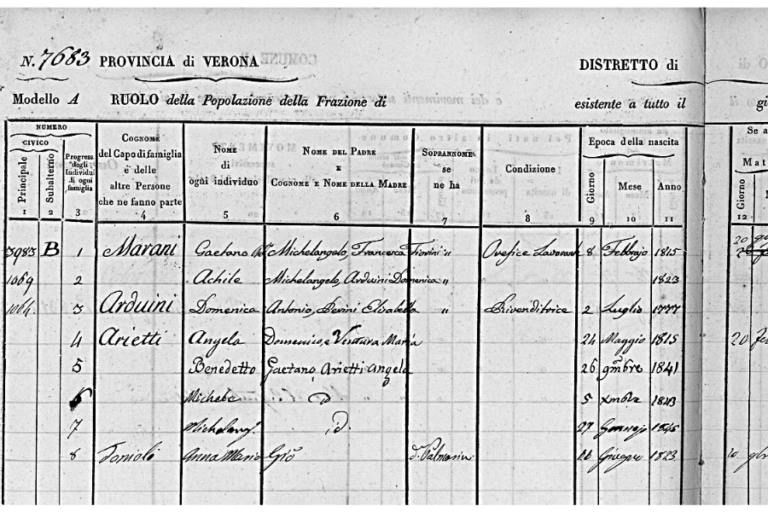 N. 7683 PROVINCIA di VERONA DISTRETTO di
Modello A RUOLO della Popolazione della Frazione di esistente a tutto il
NUMERO
CIVICO
Principale
Subalterno
Progress. degli Individui di ogni famiglia
Cognome del Capo di famiglia e delle altre Persone che ne fanno parte
Nome di ogni individuo
Nome del Padre e Cognome e Nome della Madre
Soprannome se ne ha
Condizione
Epoca della nascita
Giorno
Mese
Anno
Se a
Mat
Giorno
1 2 3 4 5 6 7 8 9 10 11 12
3983 B 1 Marani Gaetano Michelangelo, Francesca Fiorini " Orefice Lavorant 8 Febbrajo 1815 20
1069 2 Achile Michelangelo, Arduini Domenica " 1823
1064 3 Arduini Domenica Antonio, Perini Elisabetta " Rivenditrice 2 Luglio 1777
4 Arietti Angela Domenico, e Ventura Maria 24 Maggio 1815 20
5 Benedetto Gaetano, Arietti Angela 26 gmbre 1841
6 Michele id 5 xmbre 1843
7 Michelang. id. 27 Gennajo 1845
8 Tomoli Anna Maria Gio 26 Giugno 1823 10